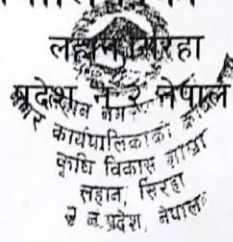 लहान, सिरहा
प्रदेश नं. २ नेपाल
लहान नगर
कार्यपालिकाको
कृषि विकास शाखा
लहान, सिरहा
२ नं. प्रदेश, नेपाल